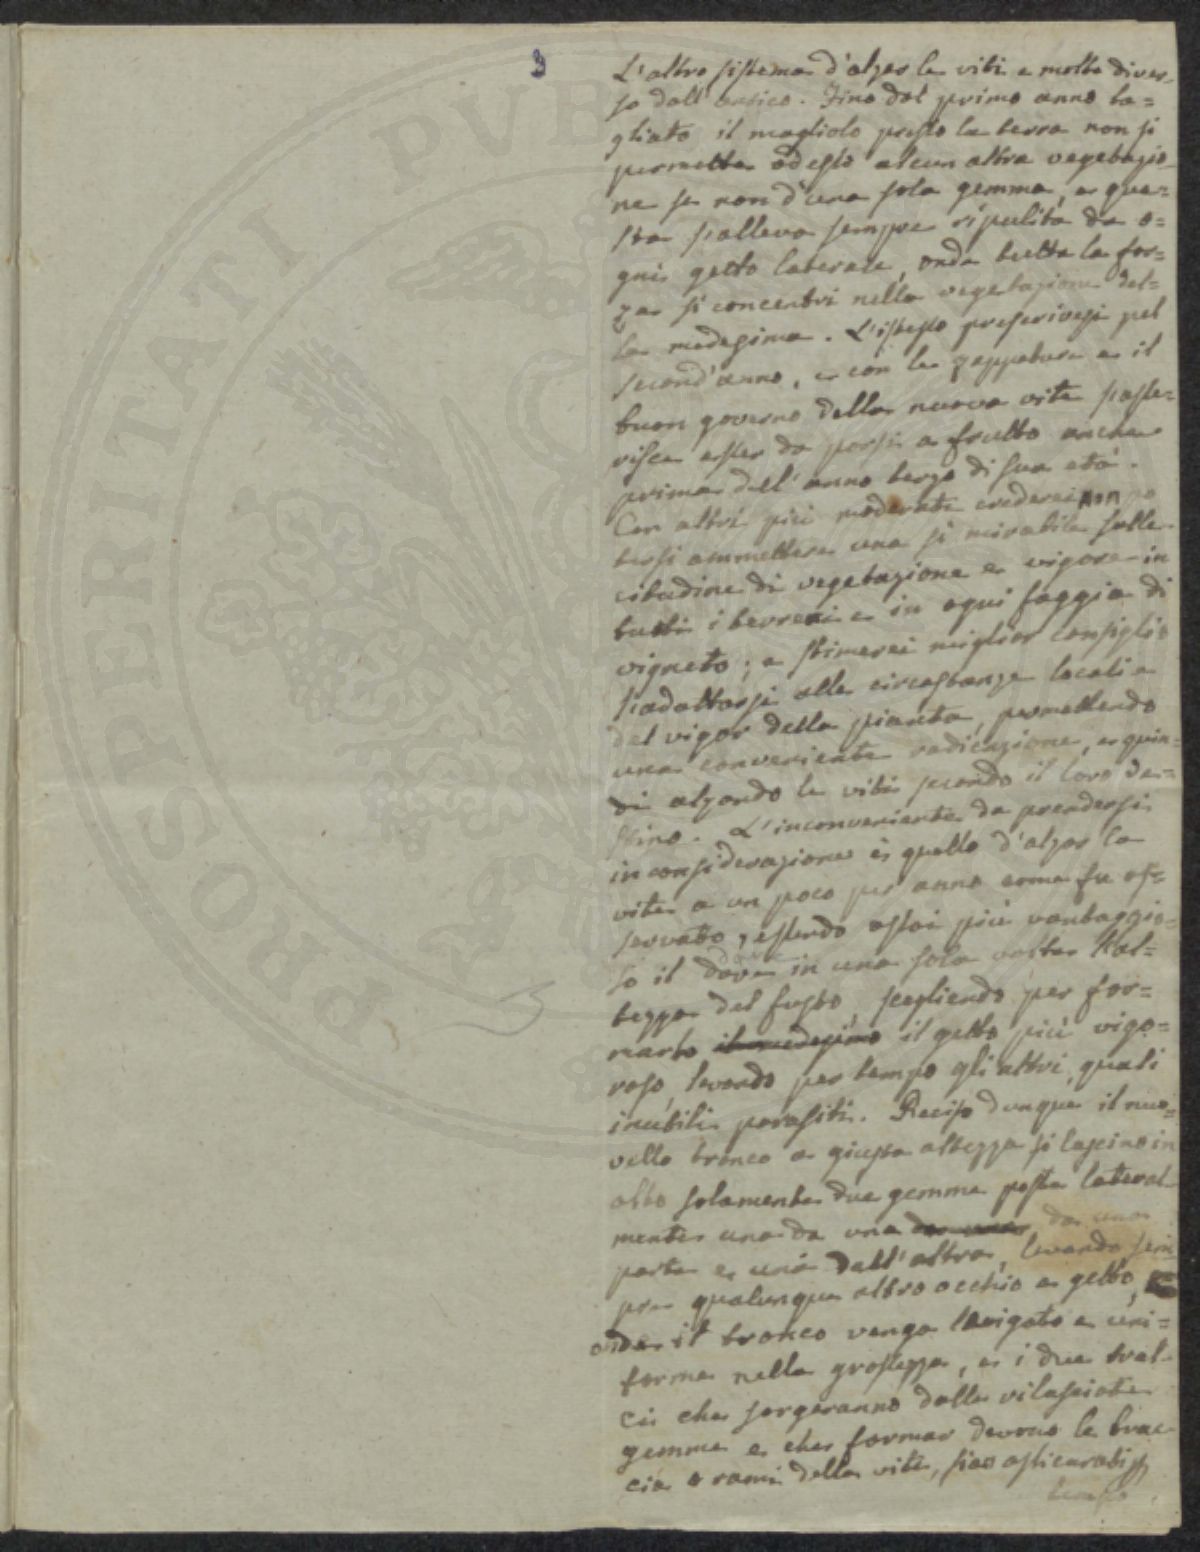 3
L'altro sistema d'alzar le viti è molto diver-
so dall'antico. Fino dal primo anno ta=
gliato il magliolo presso la terra non si
permette ad esso alcun altra vegetazio-
ne se non d'una sola gemma, e que=
sta s'alleva sempre ripulita da o=
gni getto laterale, onde tutta la for=
za si concentri nella vegetazione del=
la medesima. L'istesso prescrivesi pel
second'anno, e con le zappature e il
buon governo della nuova vite s'asse=
risce esser da porsi a frutto anche
prima dell'anno terzo di sua età.
Con altri più moderati crederei non po
tersi ammettere una sì mirabile solle-
citudine di vegetazione e vigore in
tutti i terreni e in ogni foggia di
vigneto; e stimerei miglior consiglio
l'adattarsi alle circostanze locali e
del vigor della pianta, permettendo
una conveniente radicazione, e quin=
di alzando le viti secondo il loro de=
stino. L'inconveniente da prendersi
in considerazione è quello d'alzar la
vite a un poco per anno come fu os=
servato, essendo assai più vantaggio=
so il dare in una sola volta l'al=
tezza del fusto, scegliendo per for=
marlo il medesimo il getto più vigo=
roso, levando per tempo gli altri, quali
inutili parasiti. Reciso dunque il nuo=
vello tronco a giusta altezza si lascino in
alto solamente due gemme poste lateral-
mente una da una da una da una
parte e una dall'altra, levando sem
pre qualunque altro occhio e getto,
onde il tronco venga levigato e uni=
forme nella grossezza, e i due tral-
ci che sorgeranno dalle rilasciate
gemme e che formar devono le brac-
cia o rami della vite, sian assicurati
tempo.
PUB
PROSPERITATI